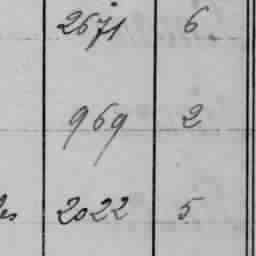 2671 6
969 2
es 2022 5